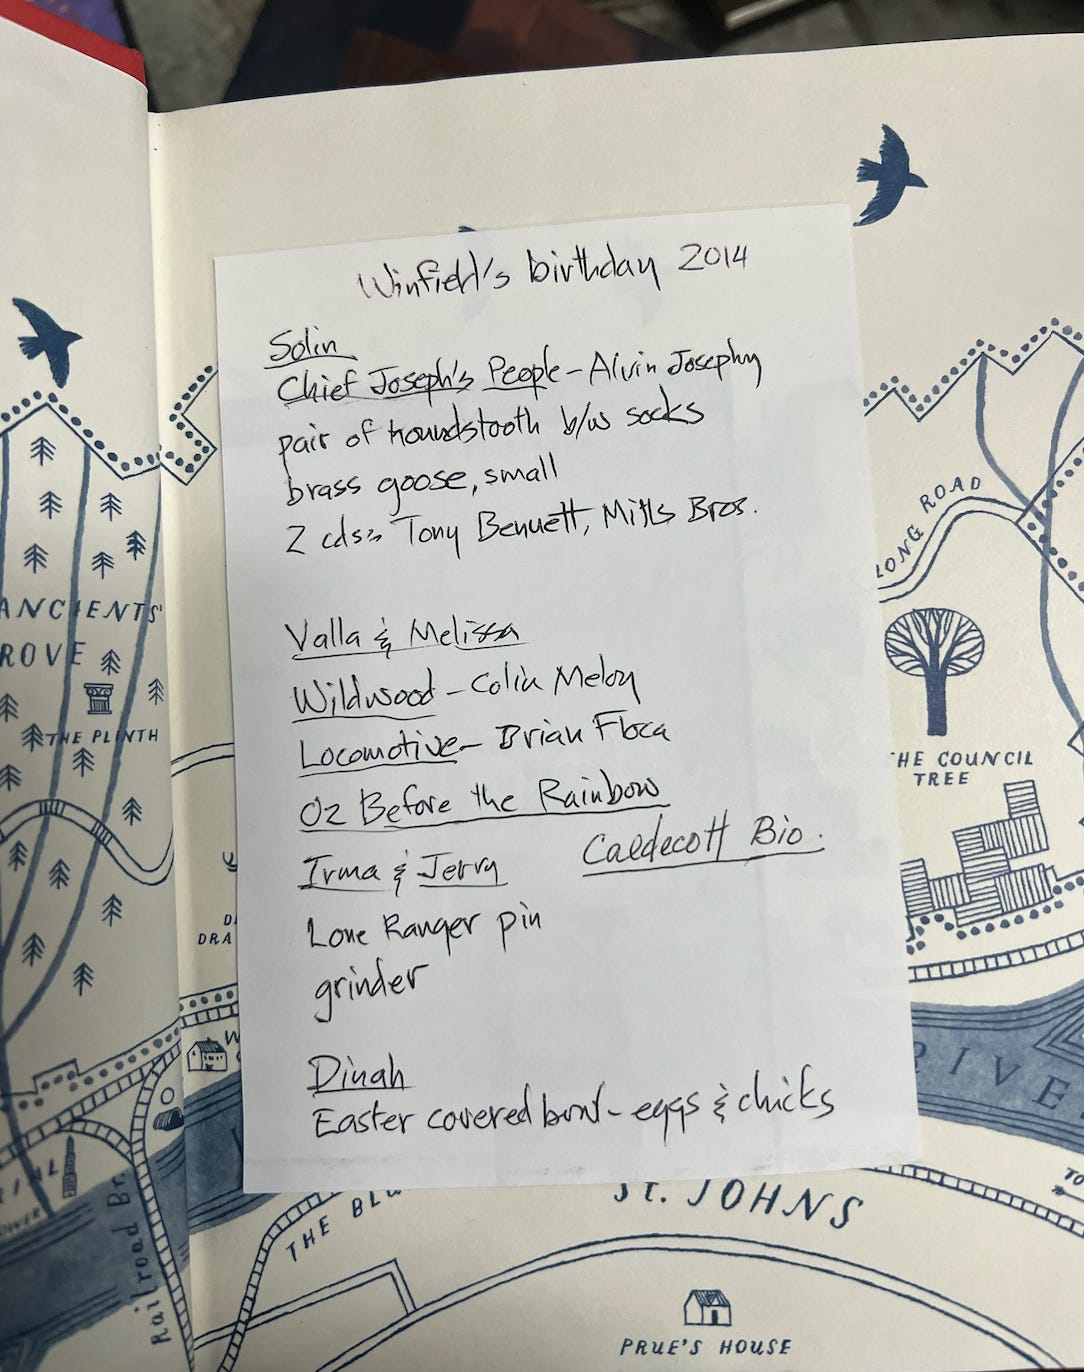 Winfield's birthday 2014
Solin
Chief Joseph's People - Alvin Josephy
pair of houndstooth b/w socks
brass goose, small
2 cds: Tony Bennett, Mills Bros.
Valla & Melissa
Wildwood - Colin Meloy
Locomotive - Brian Floca
Oz Before the Rainbow
Caldecott Bio.
Irma & Jerry
Lone Ranger pin
grinder
Dinah
Easter covered bowl - eggs & chicks
ANCIENTS'
ROVE
THE PLINTH
LONG ROAD
HE COUNCIL
TREE
D
DRA
W
RIVE
TO
RIAL
OWER
Railroad Br.
THE BLU
ST. JOHNS
PRUE'S HOUSE